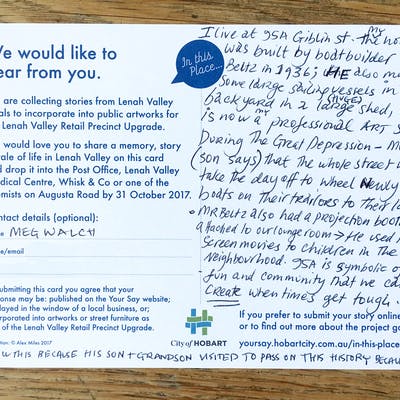 We would like to
ear from you.
are collecting stories from Lenah Valley
als to incorporate into public artworks for
Lenah Valley Retail Precinct Upgrade.
would love you to share a memory, story
tale of life in Lenah Valley on this card
d drop it into the Post Office, Lenah Valley
dical Centre, Whisk & Co or one of the
emists on Augusta Road by 31 October 2017.
ntact details (optional):
e MEG WALCH
e/email
submitting this card you agree that your
onse may be: published on the Your Say website;
layed in the window of a local business, or;
rporated into artworks or street furniture as
of the Lenah Valley Retail Precinct Upgrade.
tion: © Alex Miles 2017
In this
Place...
City of HOBART
I live at 95A Giblin st. My the ho
was built by boatbuilder
Beltz in 1936; HE also ma
Some large sailing vessels in
backyard in a large (HUGE) shed,
is now a professional ART S
During The Great Depression - M
(son says) that the whole street w
take the day off to wheel Newly
boats on their trailors to their la
• MR Beltz also had a projection booth
attached to our lounge room → He used
Screen movies to children in the
Neighbourhood. 95A is symbolic o
fun and community that we ca
Create when times get tough.
If you prefer to submit your story online
or to find out more about the project go
yoursay.hobartcity.com.au/in-this-place
W THIS BECAUSE HIS SON + GRANDSON VISITED TO PASS ON THIS HISTORY BECAU